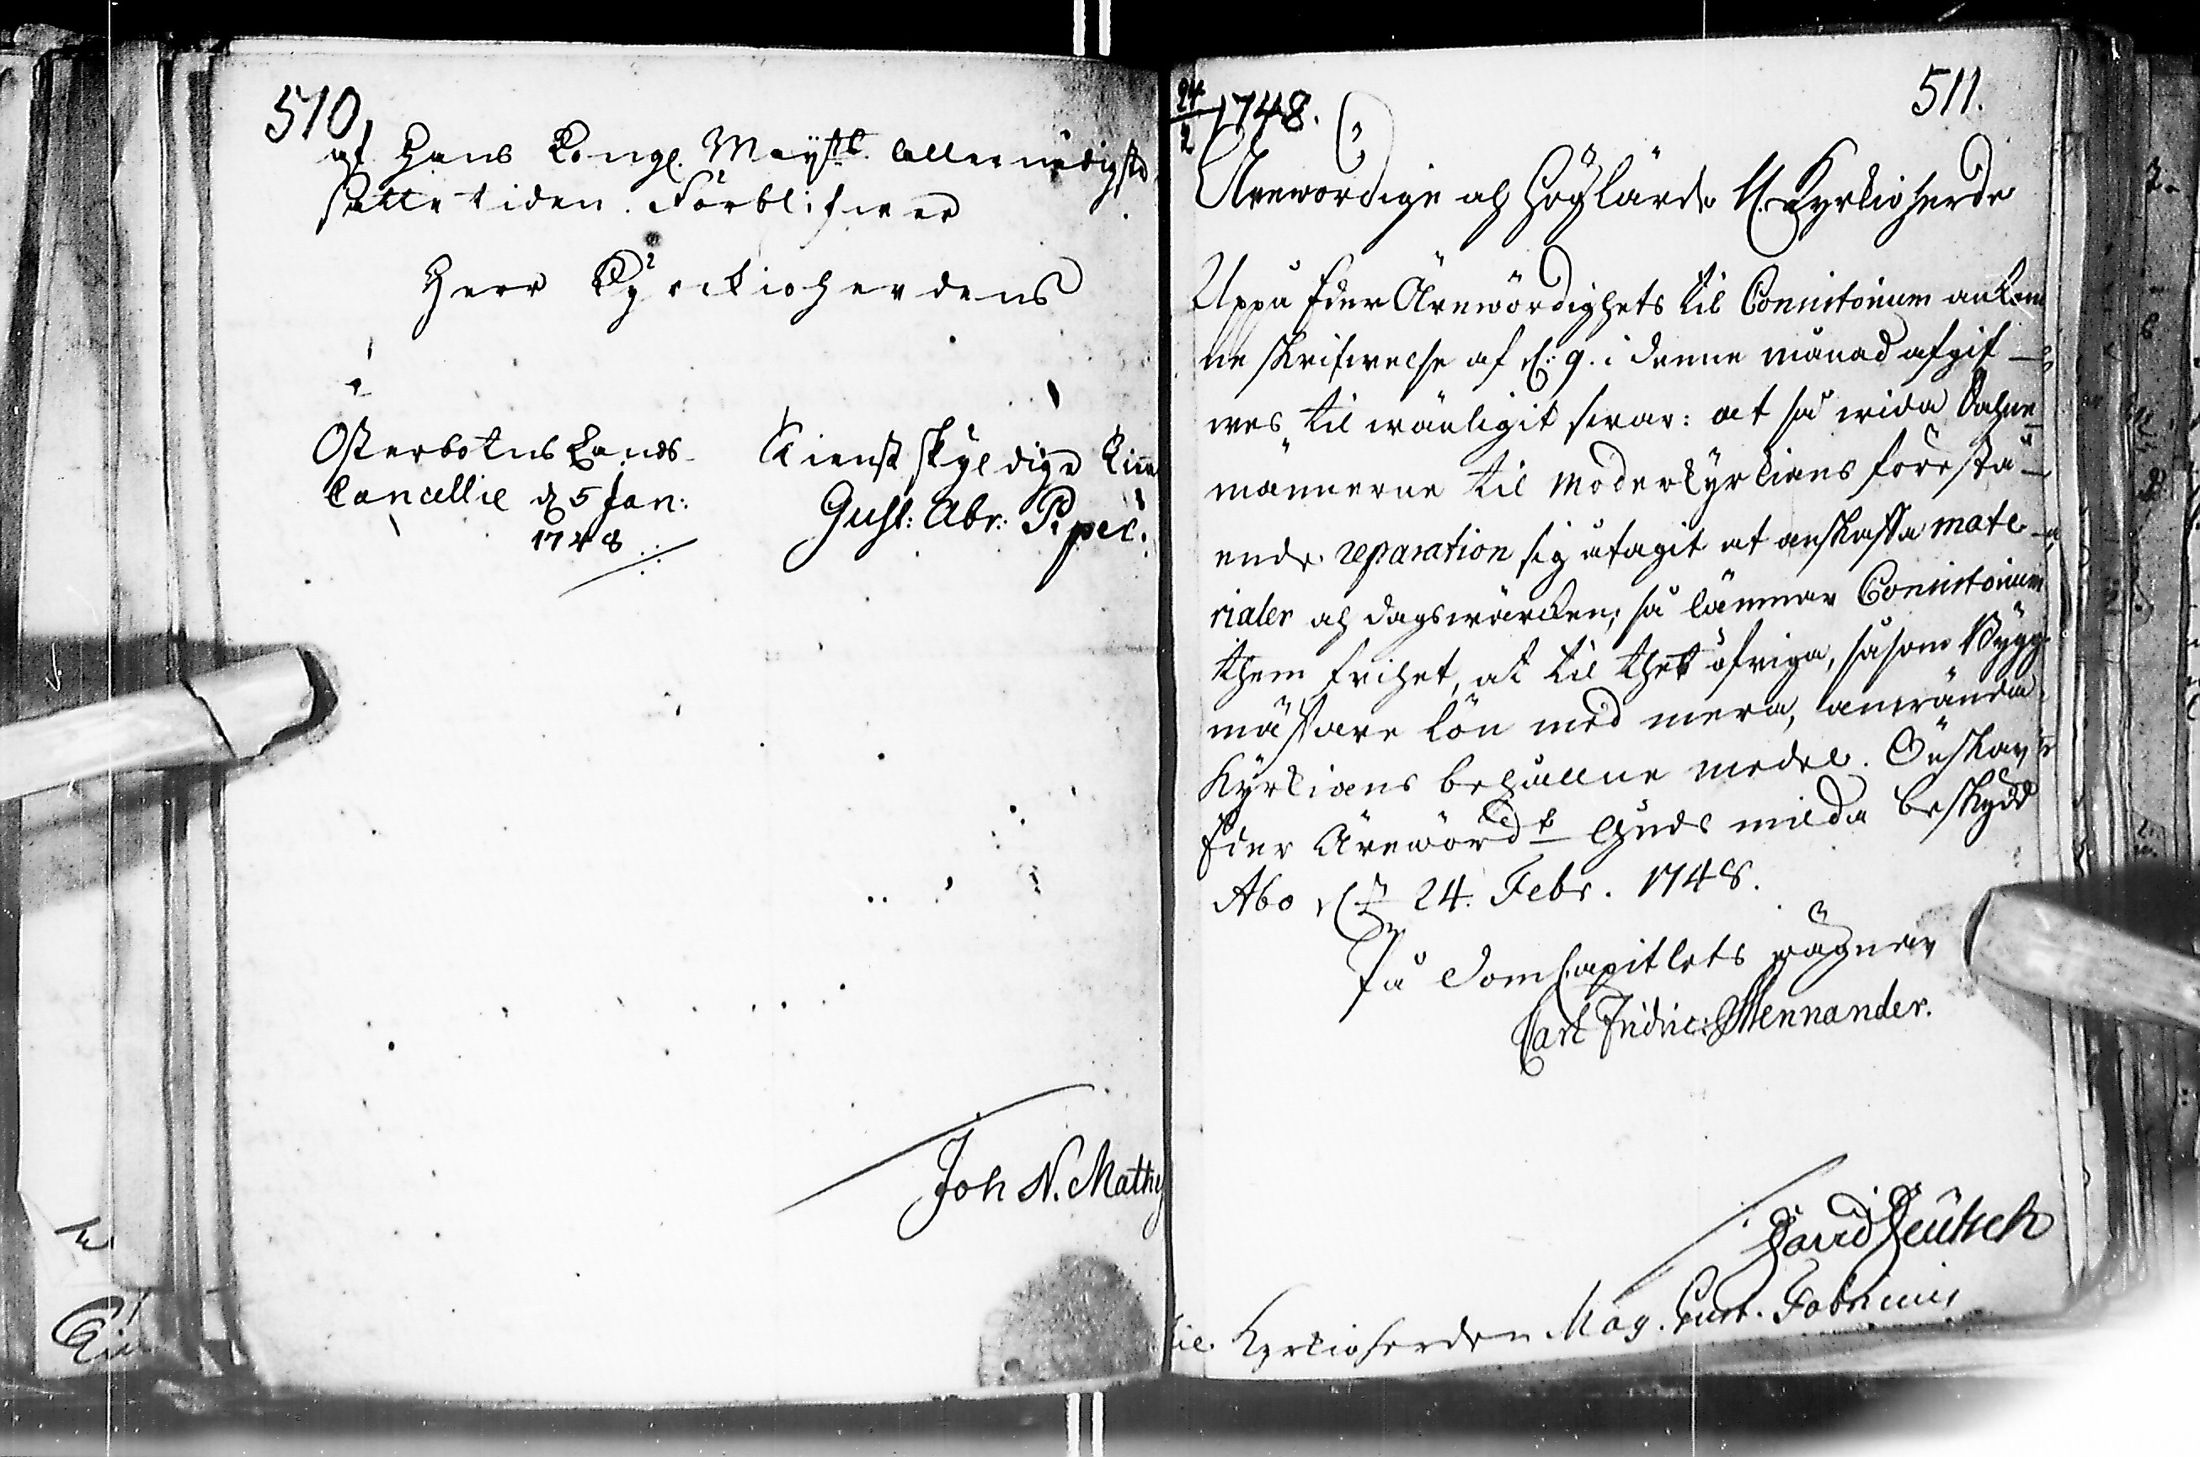 510
af Hans Kongl. Maystts. Allernådigst
satte tiden. Förblifwer
Herr Kyrckioherdens
Österbotns Lands
Cancellie d 5 Jan:
1748
Tienst skyldige tien
Gust: Abr: Piper.
Joh N. Mathe
24/2 1748.
511.
Ärewördige ock Höglärde H. Kyrkioherde
Uppå Eder Ärewördighets til Consistorium ankom
ne skrifwelse af d: 9. i denne månad afgif–
wes til wänligit swar: at så wida Dahne–
männerne til moderkyrkians förestå–
ende reparation sig åtagit at anskaffa mate–
rialer ock dagswärcken; så lämnar Consistorium
them frihet, at til thet öfriga, såsom Bygg
mästare lön med mera, anwända
Kyrkians behållne medel. Önskar
Eder Ärewördht Guds milda beskydd
Åbo d 24. Febr. 1748.
På DomCapitlets wägnar
Carl Fridric: Mennander.
David Deutsch
til Kyrkioherden Mag. Gust. Fabricius